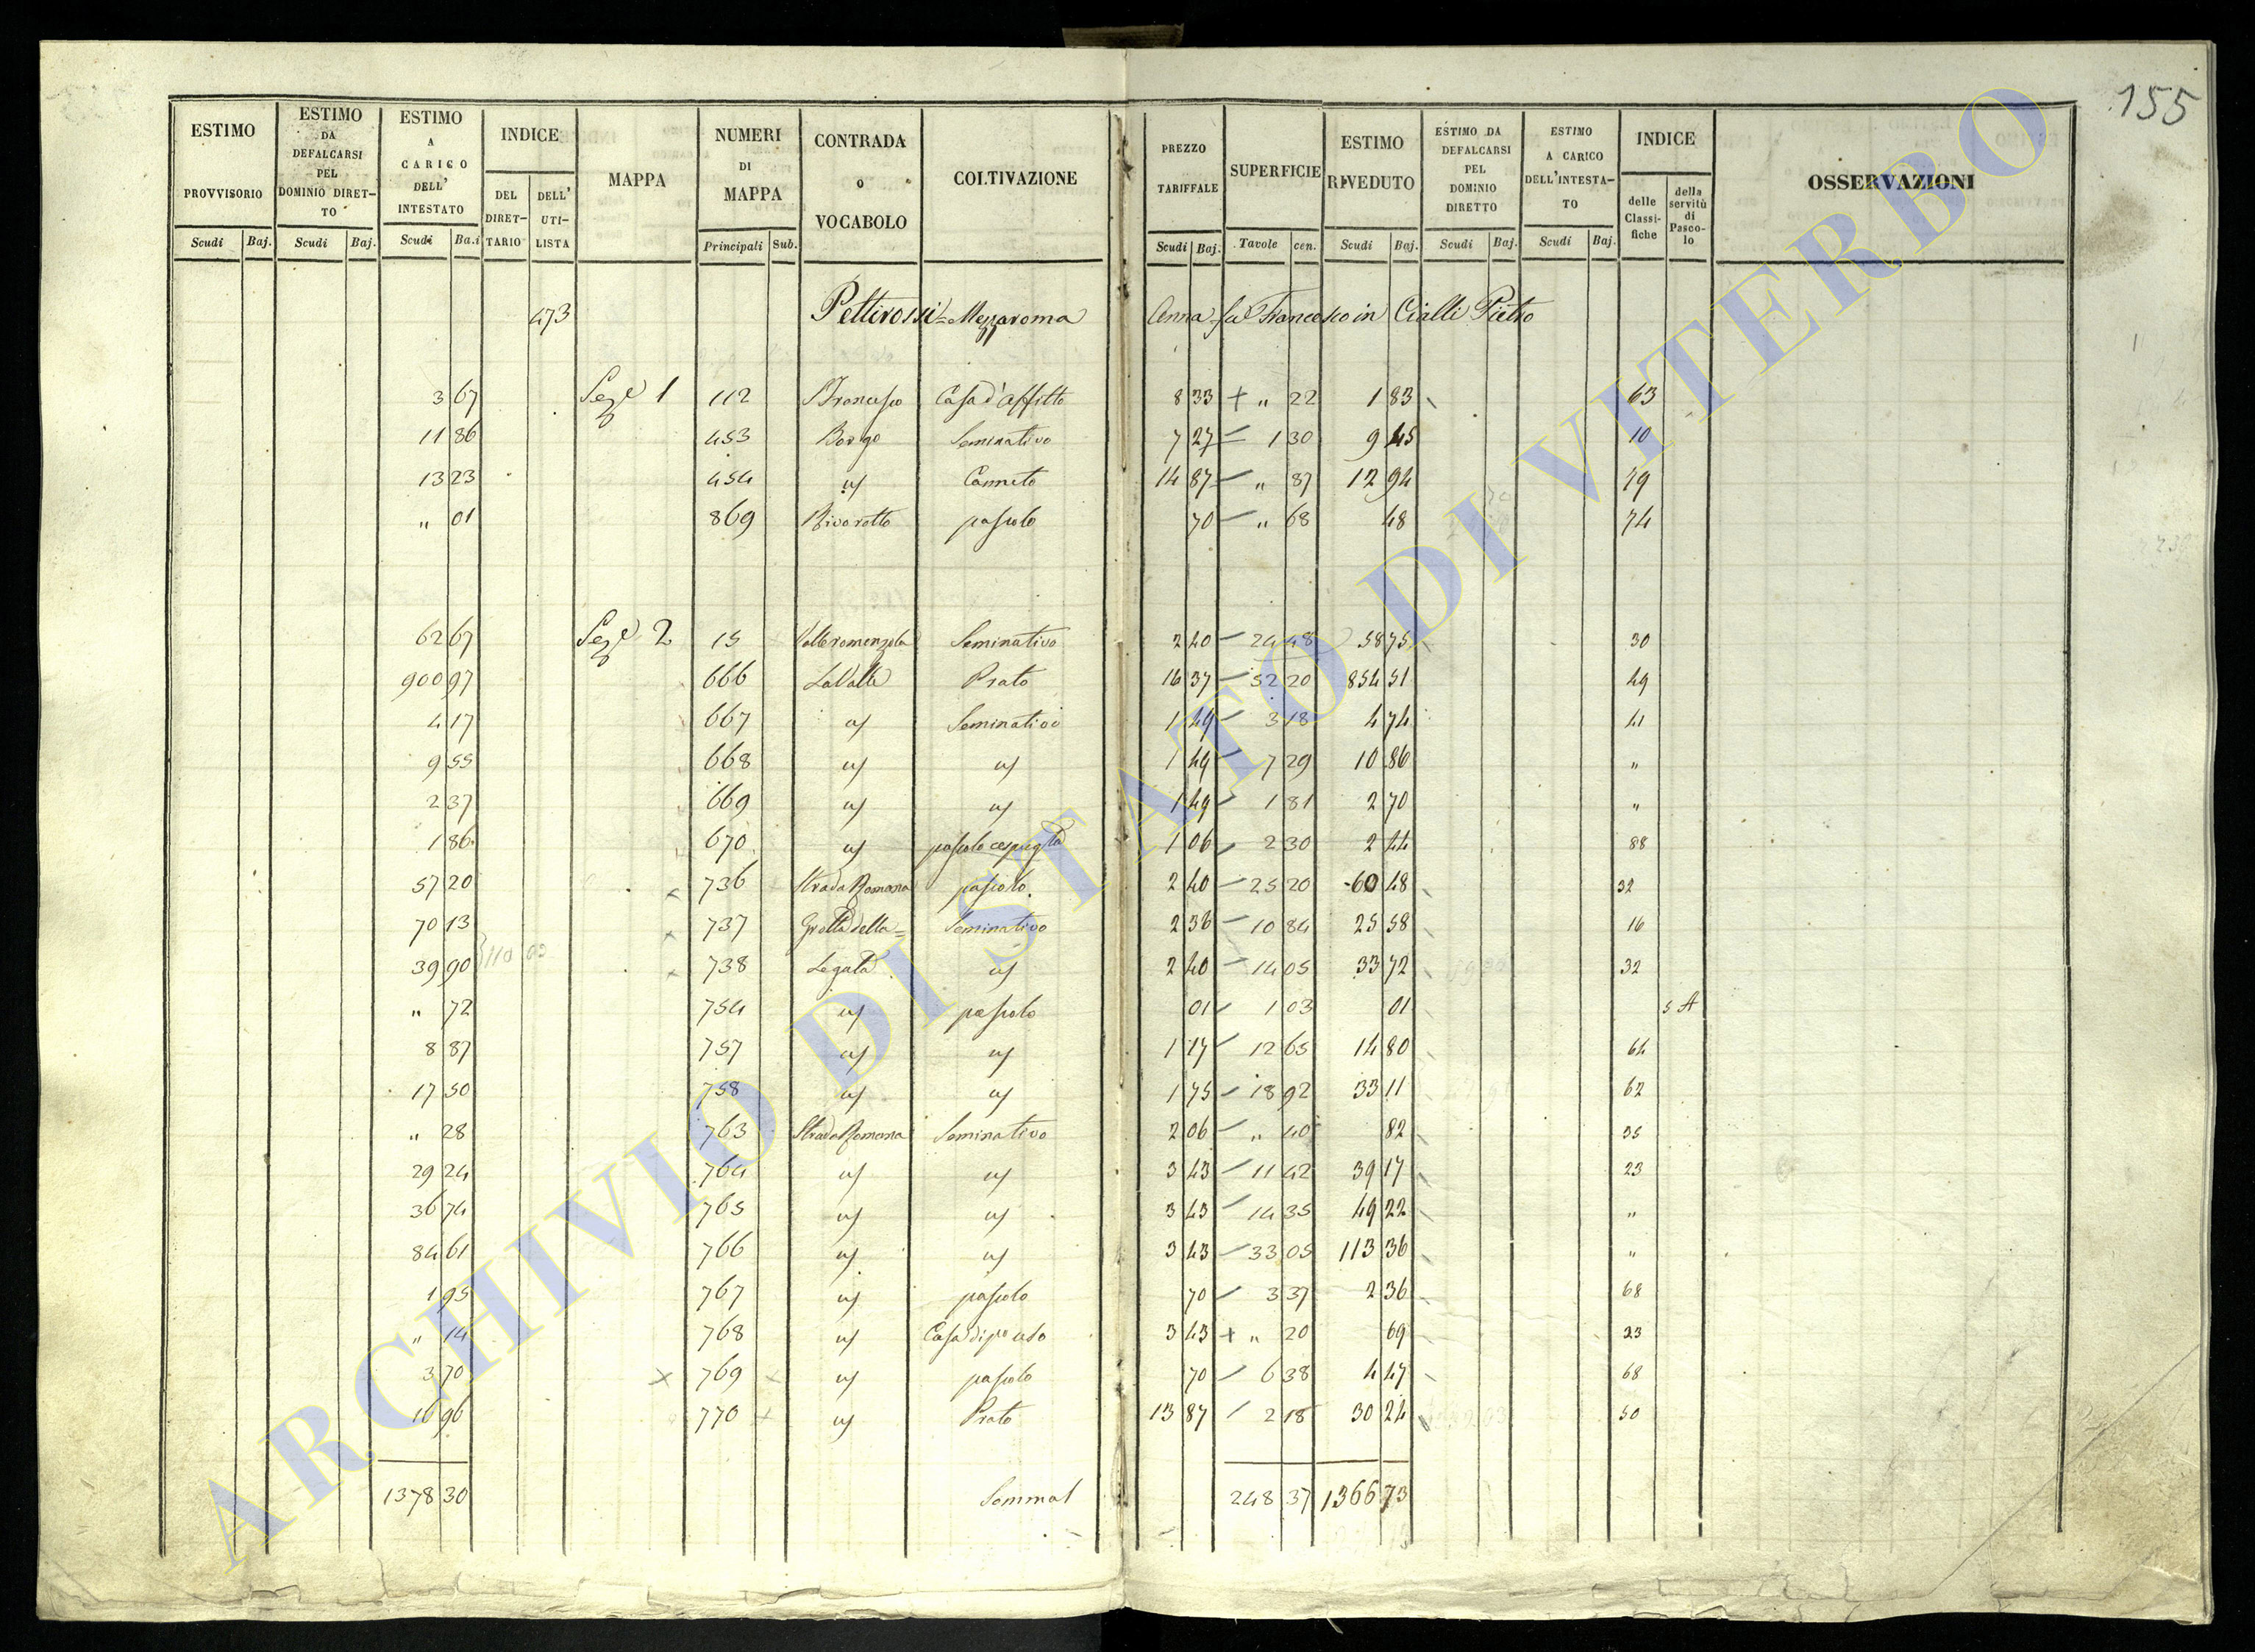 155
ESTIMO PROVVISORIO | ESTIMO DA DEFALCARSI PEL DOMINIO DIRETTO | ESTIMO A CARICO DELL' INTESTATO | INDICE | MAPPA | NUMERI DI MAPPA | CONTRADA o VOCABOLO | COLTIVAZIONE | PREZZO TARIFFALE | SUPERFICIE | ESTIMO RIVEDUTO | ESTIMO DA DEFALCARSI PEL DOMINIO DIRETTO | ESTIMO A CARICO DELL'INTESTATO | INDICE | OSSERVAZIONI
Scudi | Baj. | Scudi | Baj. | Scudi | Ba.i | DEL DIRETTARIO | DELL' UTILISTA | Principali | Sub. | Scudi | Baj. | Tavole | cen. | Scudi | Baj. | Scudi | Baj. | Scudi | Baj. | delle Classifiche | della servitù di Pascolo
473 Pettirossi = Mezzaroma Anna fu Francesco in Cialli Pietro
3 67 Seze 1 112 Casa d'affitto 8 33 + " 22 1 83 63
11 86 453 Borgo Seminativo 7 27 1 30 9 45 10
13 23 454 " Canneto 14 87 " 87 12 94 49
" 01 869 Rivoretto pascolo 70 " 68 48 74
62 67 Seze 2 15 Valleromenzola Seminativo 2 40 24 48 58 75 30
900 97 666 La Valle Prato 16 37 52 20 854 51 49
4 17 667 " Seminativo 1 49 3 18 4 74 41
9 55 668 " " 1 49 7 29 10 86 "
2 37 669 " " 1 49 1 81 2 70 "
1 86 670 " pascolo cespuglto 1 06 2 30 2 44 88
57 20 736 Strada Romana pascolo 2 40 25 20 60 48 32
70 13 737 Grotta della= Seminativo 2 36 10 84 25 58 16
39 90 110 03 738 Legata " 2 40 14 05 33 72 32
" 72 754 " pascolo 01 1 03 01 5 A
8 87 757 " " 1 17 12 65 14 80 64
17 50 758 " " 1 75 18 92 33 11 62
" 28 763 Strada Romana Seminativo 2 06 " 40 82 35
29 24 764 " " 3 43 11 42 39 17 23
36 74 765 " " 3 43 14 35 49 22 "
84 61 766 " " 3 43 33 05 113 36 "
1 95 767 " pascolo 70 3 37 2 36 68
" 14 768 " Casa di po uso 3 43 + " 20 69 23
3 70 x 769 " pascolo 70 6 38 4 47 68
16 96 770 + " Prato 13 87 2 18 30 24 50
1378 30 Sommal 248 37 1366 73
ARCHIVIO DI STATO DI VITERBO